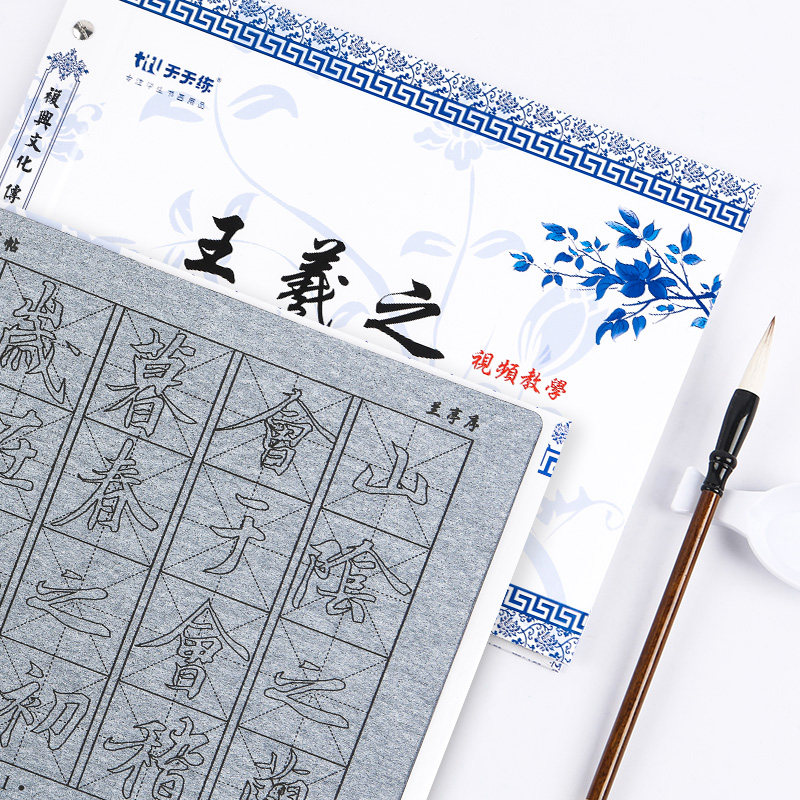 天天练®
专注学生书画用品
復興文化 傳
王羲之
視頻教學
帖
兰亭序
山陰之蘭
會于會稽
暮春之初
歲在